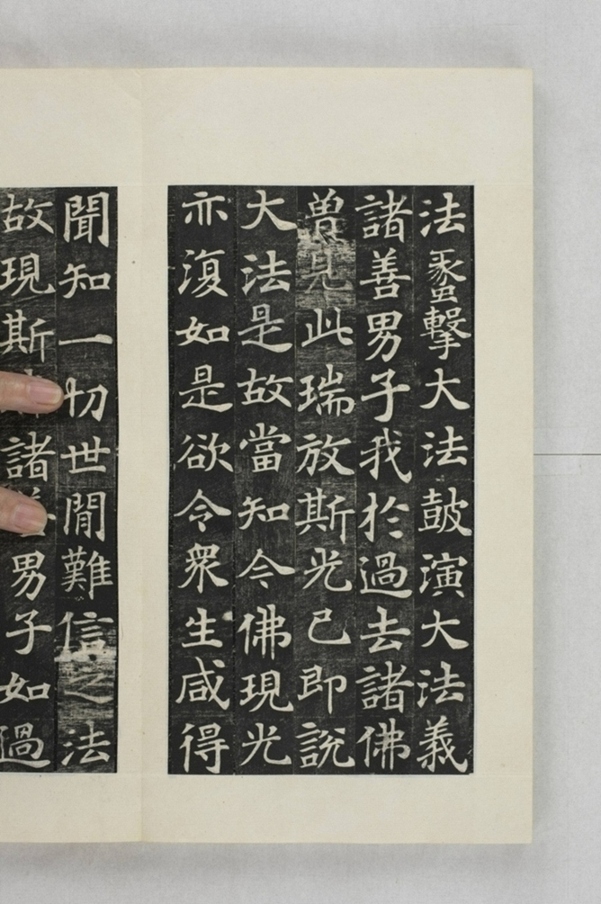 法蠡擊大法鼓演大法義
諸善男子我於過去諸佛
曽見此瑞放斯光已即說
大法是故當知今佛現光
亦復如是欲令衆生咸得
聞知一切世間難信之法
故現斯諸男子如過